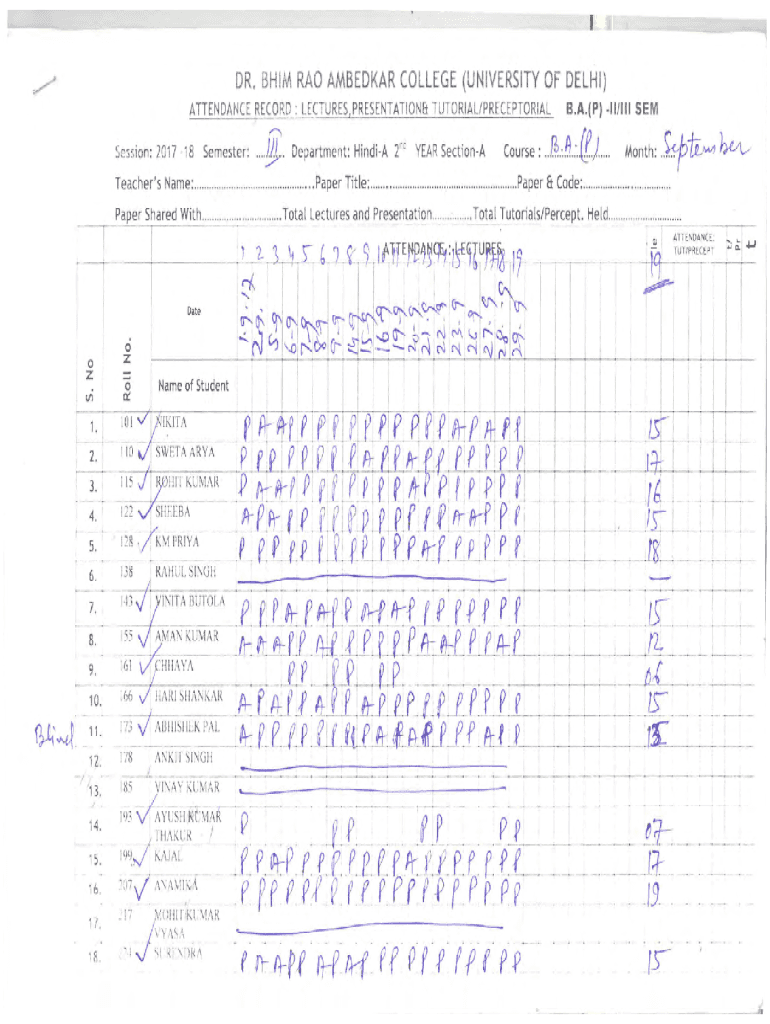 DR. BHIM RAO AMBEDKAR COLLEGE (UNIVERSITY OF DELHI)
ATTENDANCE RECORD : LECTURES,PRESENTATION& TUTORIAL/PRECEPTORIAL B.A.(P) -II/III SEM
Session: 2017 -18 Semester: ...III... Department: Hindi-A 2nd YEAR Section-A Course : B.A.(P) Month: September
Teacher's Name:....................Paper Title:....................Paper & Code:....................
Paper Shared With....................Total Lectures and Presentation..........Total Tutorials/Percept. Held....................
ATTENDANCE : LECTURES
ATTENDANCE: TUT/PRECEPT
1 2 3 4 5 6 7 8 9 10 11 12 13 14 15 16 17 18 19
19
S. No
Roll No.
Date
Name of Student
1.9.17 2.9. 5-9 6-9 7-9 8-9 9-9 14-9 15-9 16-9 19-9 20-9 21-9 22-9 23-9 26-9 27.9 28.9 29.9
1. 101 NIKITA P A A P P P P P P P P P P P A P A P P 15
2. 110 SWETA ARYA P P P P P P P P A P P A P P P P P P P 17
3. 115 ROHIT KUMAR P A A P P P P P P P P A P P P P P P 16
4. 122 SHEEBA A P A P P P P P P P P P P P A A P P P 15
5. 128 KM PRIYA P P P P P P P P P P P P A P P P P P P 18
6. 138 RAHUL SINGH —
7. 143 VINITA BUTOLA P P P A P A P P A P A P P P P P P P P 15
8. 155 AMAN KUMAR A A A P P A P P P P P P A A P P P A P 12
9. 161 CHHAYA P P P P P P 06
10. 166 HARI SHANKAR A P A P P A P P A P P P P P P P P P P 15
Blind 11. 173 ABHISHEK PAL 15
12. 178 ANKIT SINGH
13. 185 VINAY KUMAR
14. 193 AYUSH KUMAR THAKUR P P P P P P P 07
15. 199 KAJAL P P A P P P P P P P P A P P P P P P P 17
16. 207 ANAMIKA P P P P P P P P P P P P P P P P P P P 19
17. 217 MOHIT KUMAR VYASA
18. SURENDRA P A A P P A P A P P P P P P P P P P P 15